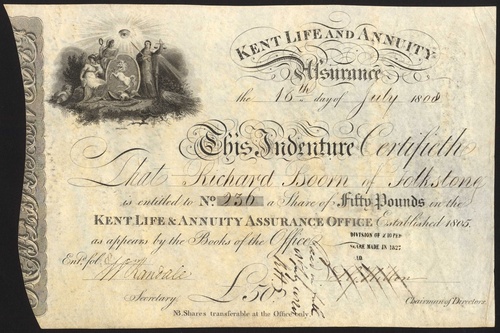 KENT LIFE AND ANNUITY
Assurance
the 16th day of July 1808
This Indenture Certifieth
That Richard Boorn of Folkstone
is entitled to No 236 a Share of Fifty Pounds in the
KENT LIFE & ANNUITY ASSURANCE OFFICE Established 1805.
as appears by the Books of the Office
DIVISION OF
MADE IN 1827
Entd. fol.
Randale
Secretary.
£50
Chairman of Directors
NB Shares transferable at the Office only.